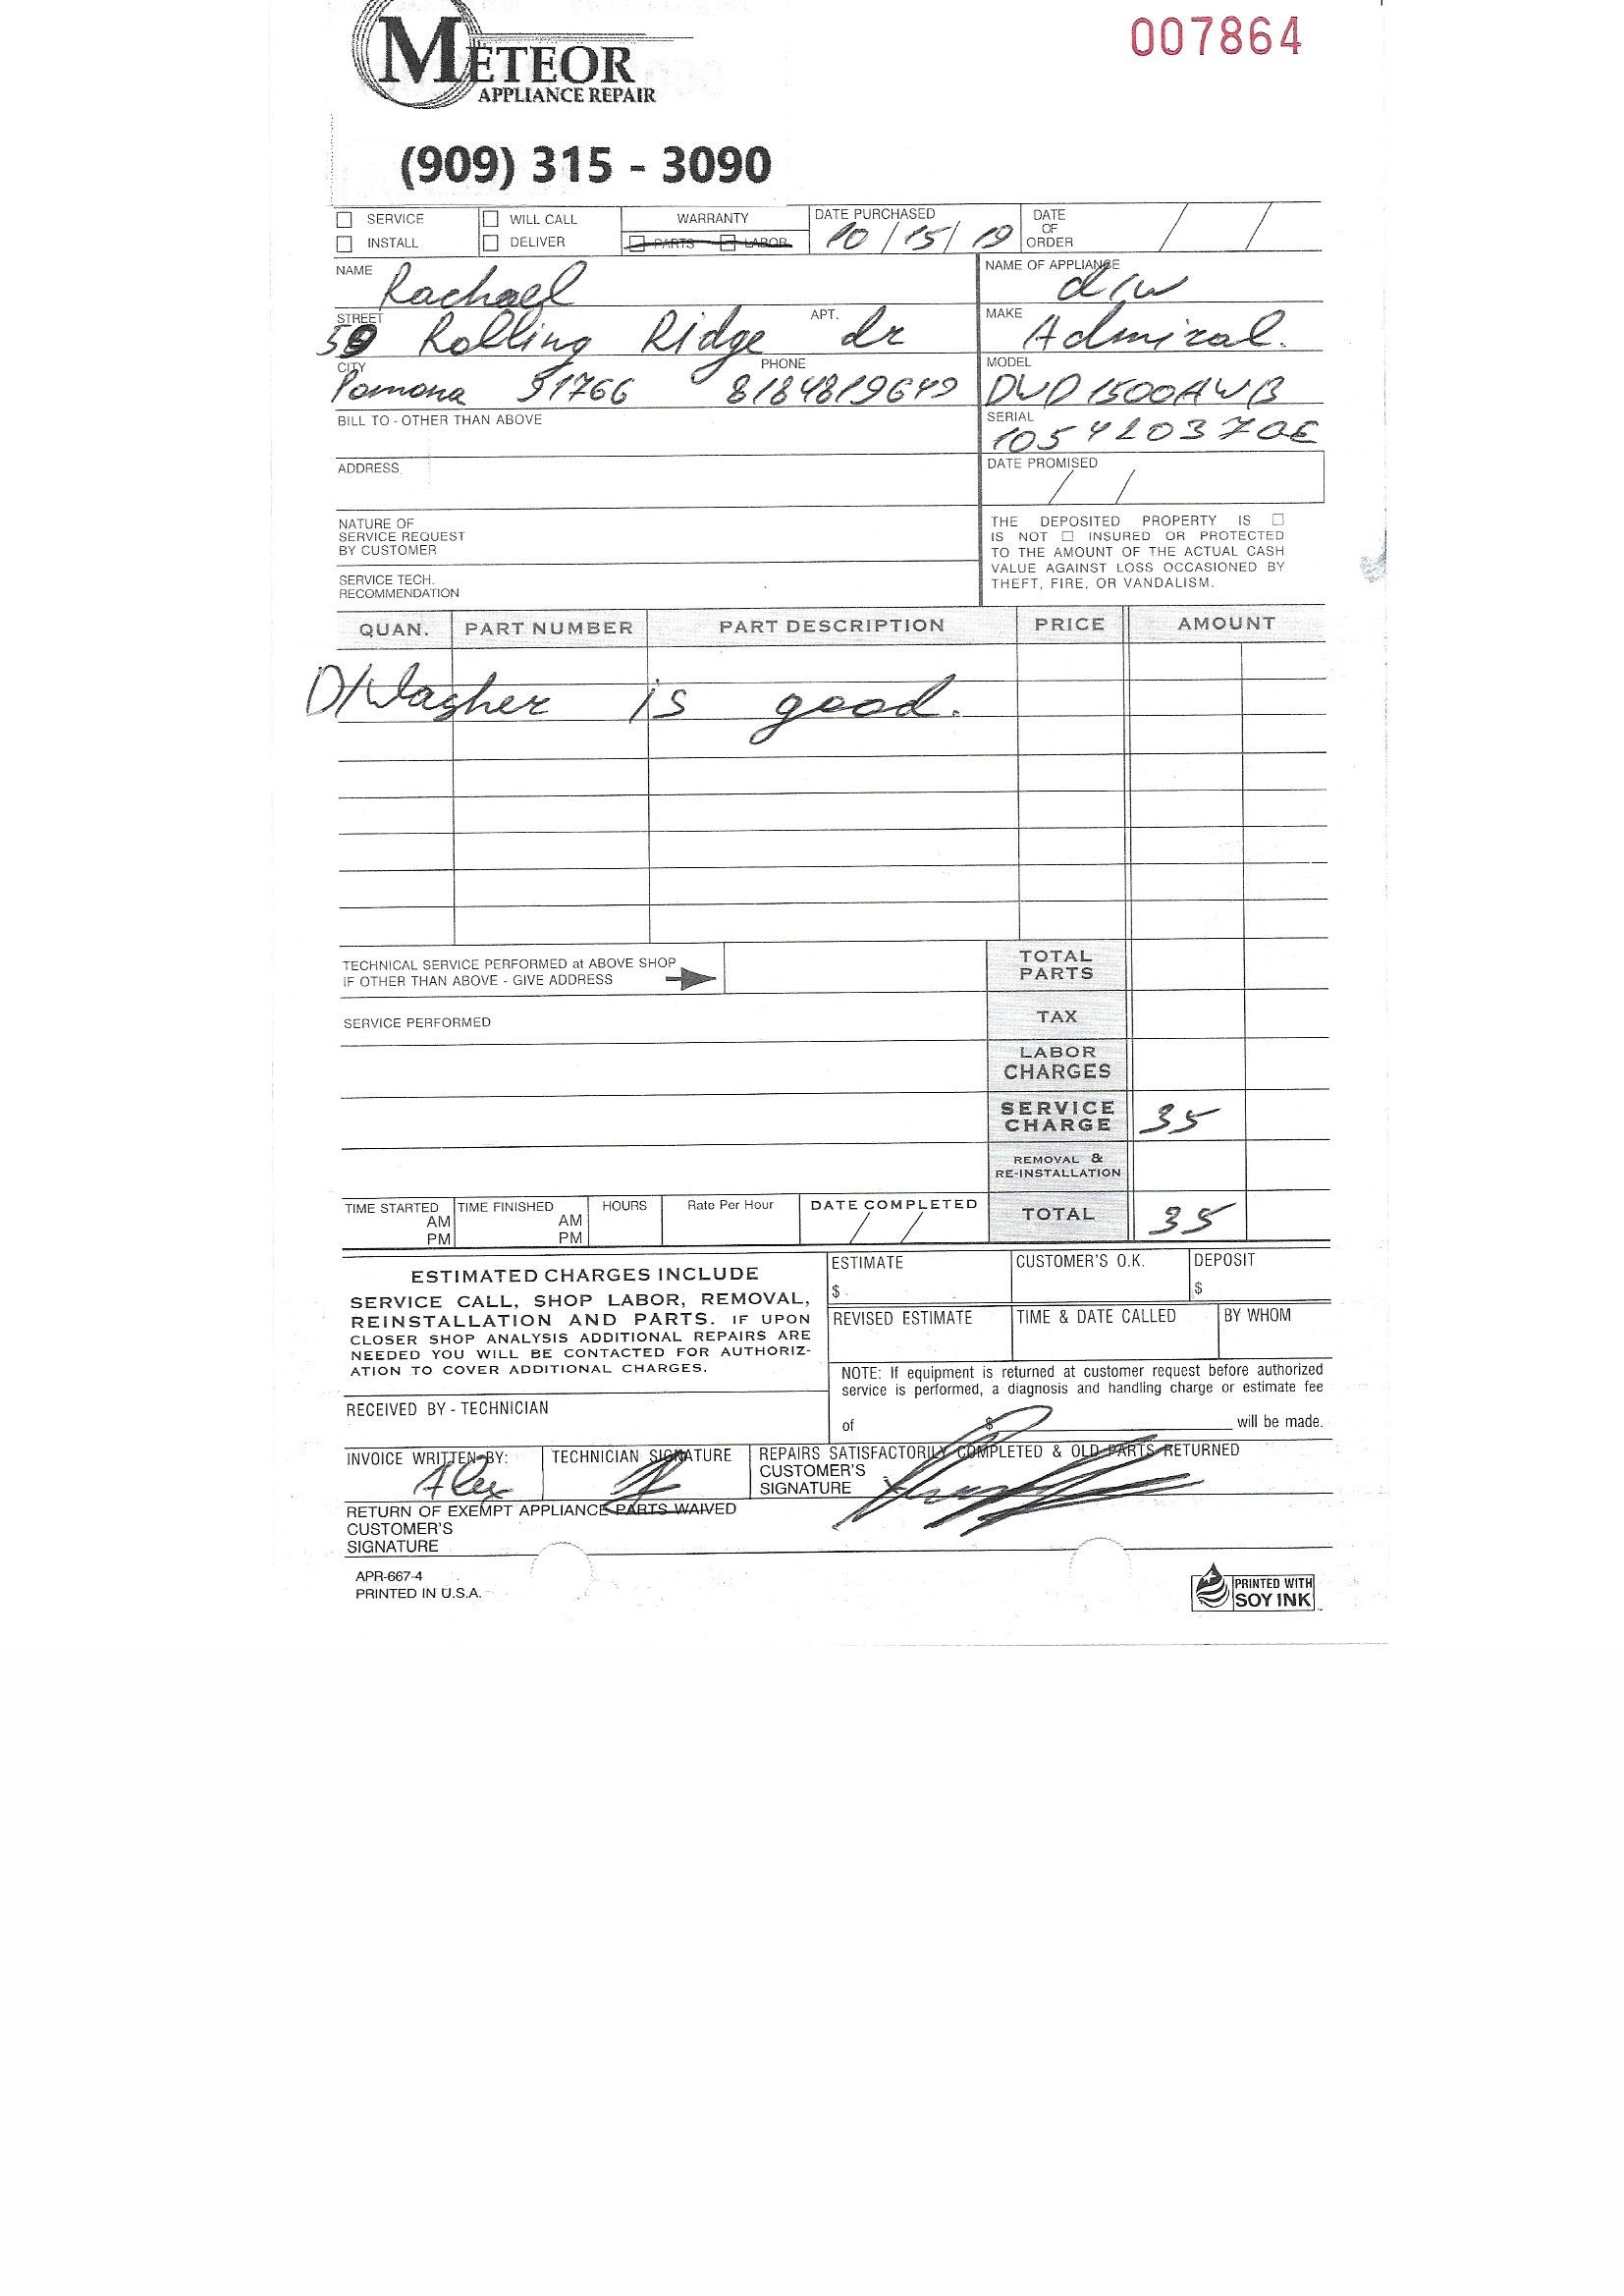 METEOR
APPLIANCE REPAIR
007864
(909) 315 - 3090
SERVICE WILL CALL WARRANTY DATE PURCHASED DATE OF ORDER
INSTALL DELIVER PARTS LABOR 10/15/19 / /
NAME Rachael NAME OF APPLIANCE d/w
STREET APT. MAKE
Rolling Ridge dr Admiral.
CITY PHONE MODEL
Pomona 91766 8184819649 DWD1500AWB
BILL TO - OTHER THAN ABOVE SERIAL
ADDRESS DATE PROMISED
/ /
NATURE OF
SERVICE REQUEST
BY CUSTOMER
SERVICE TECH.
RECOMMENDATION
THE DEPOSITED PROPERTY IS
IS NOT INSURED OR PROTECTED
TO THE AMOUNT OF THE ACTUAL CASH
VALUE AGAINST LOSS OCCASIONED BY
THEFT, FIRE, OR VANDALISM.
QUAN. PART NUMBER PART DESCRIPTION PRICE AMOUNT
D/Wasger is good.
TECHNICAL SERVICE PERFORMED at ABOVE SHOP
IF OTHER THAN ABOVE - GIVE ADDRESS
TOTAL
PARTS
SERVICE PERFORMED
TAX
LABOR
CHARGES
SERVICE
CHARGE 35
REMOVAL &
RE-INSTALLATION
TIME STARTED TIME FINISHED HOURS Rate Per Hour DATE COMPLETED TOTAL 35
AM AM / /
PM PM
ESTIMATED CHARGES INCLUDE
SERVICE CALL, SHOP LABOR, REMOVAL,
REINSTALLATION AND PARTS. IF UPON
CLOSER SHOP ANALYSIS ADDITIONAL REPAIRS ARE
NEEDED YOU WILL BE CONTACTED FOR AUTHORIZ-
ATION TO COVER ADDITIONAL CHARGES.
ESTIMATE CUSTOMER'S O.K. DEPOSIT
$ $
REVISED ESTIMATE TIME & DATE CALLED BY WHOM
NOTE: If equipment is returned at customer request before authorized
service is performed, a diagnosis and handling charge or estimate fee
of $ will be made.
RECEIVED BY - TECHNICIAN
INVOICE WRITTEN BY: TECHNICIAN SIGNATURE REPAIRS SATISFACTORILY COMPLETED & OLD PARTS RETURNED
Alex CUSTOMER'S
SIGNATURE
RETURN OF EXEMPT APPLIANCE PARTS WAIVED
CUSTOMER'S
SIGNATURE
APR-667-4
PRINTED IN U.S.A.
PRINTED WITH
SOY INK